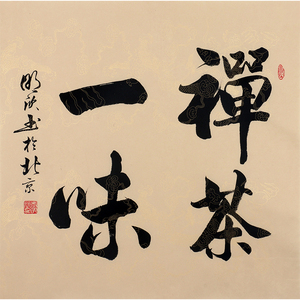 禪茶
一味
明月书於北京